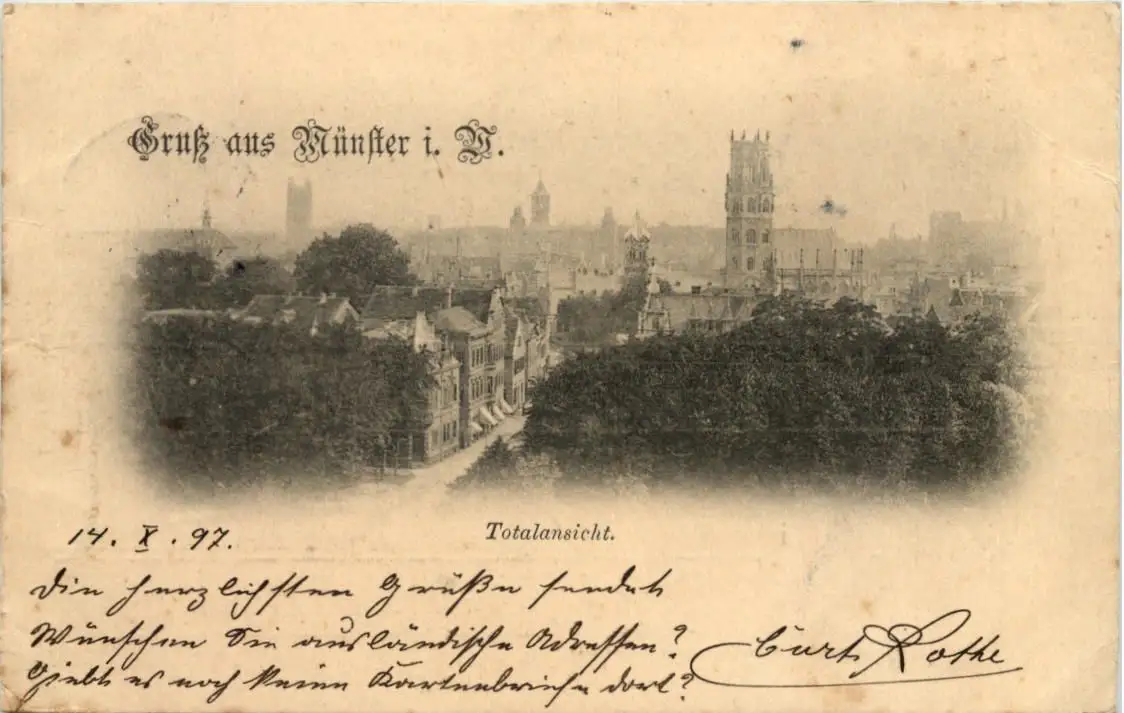 Gruß aus Münster i. W.
Totalansicht.
14. X. 97.
Die herzlichsten Grüße sendet
Wünschen Sie ausländische Adressen?
Curt Rothe
Giebt es noch keine Kartenbriefe dort?